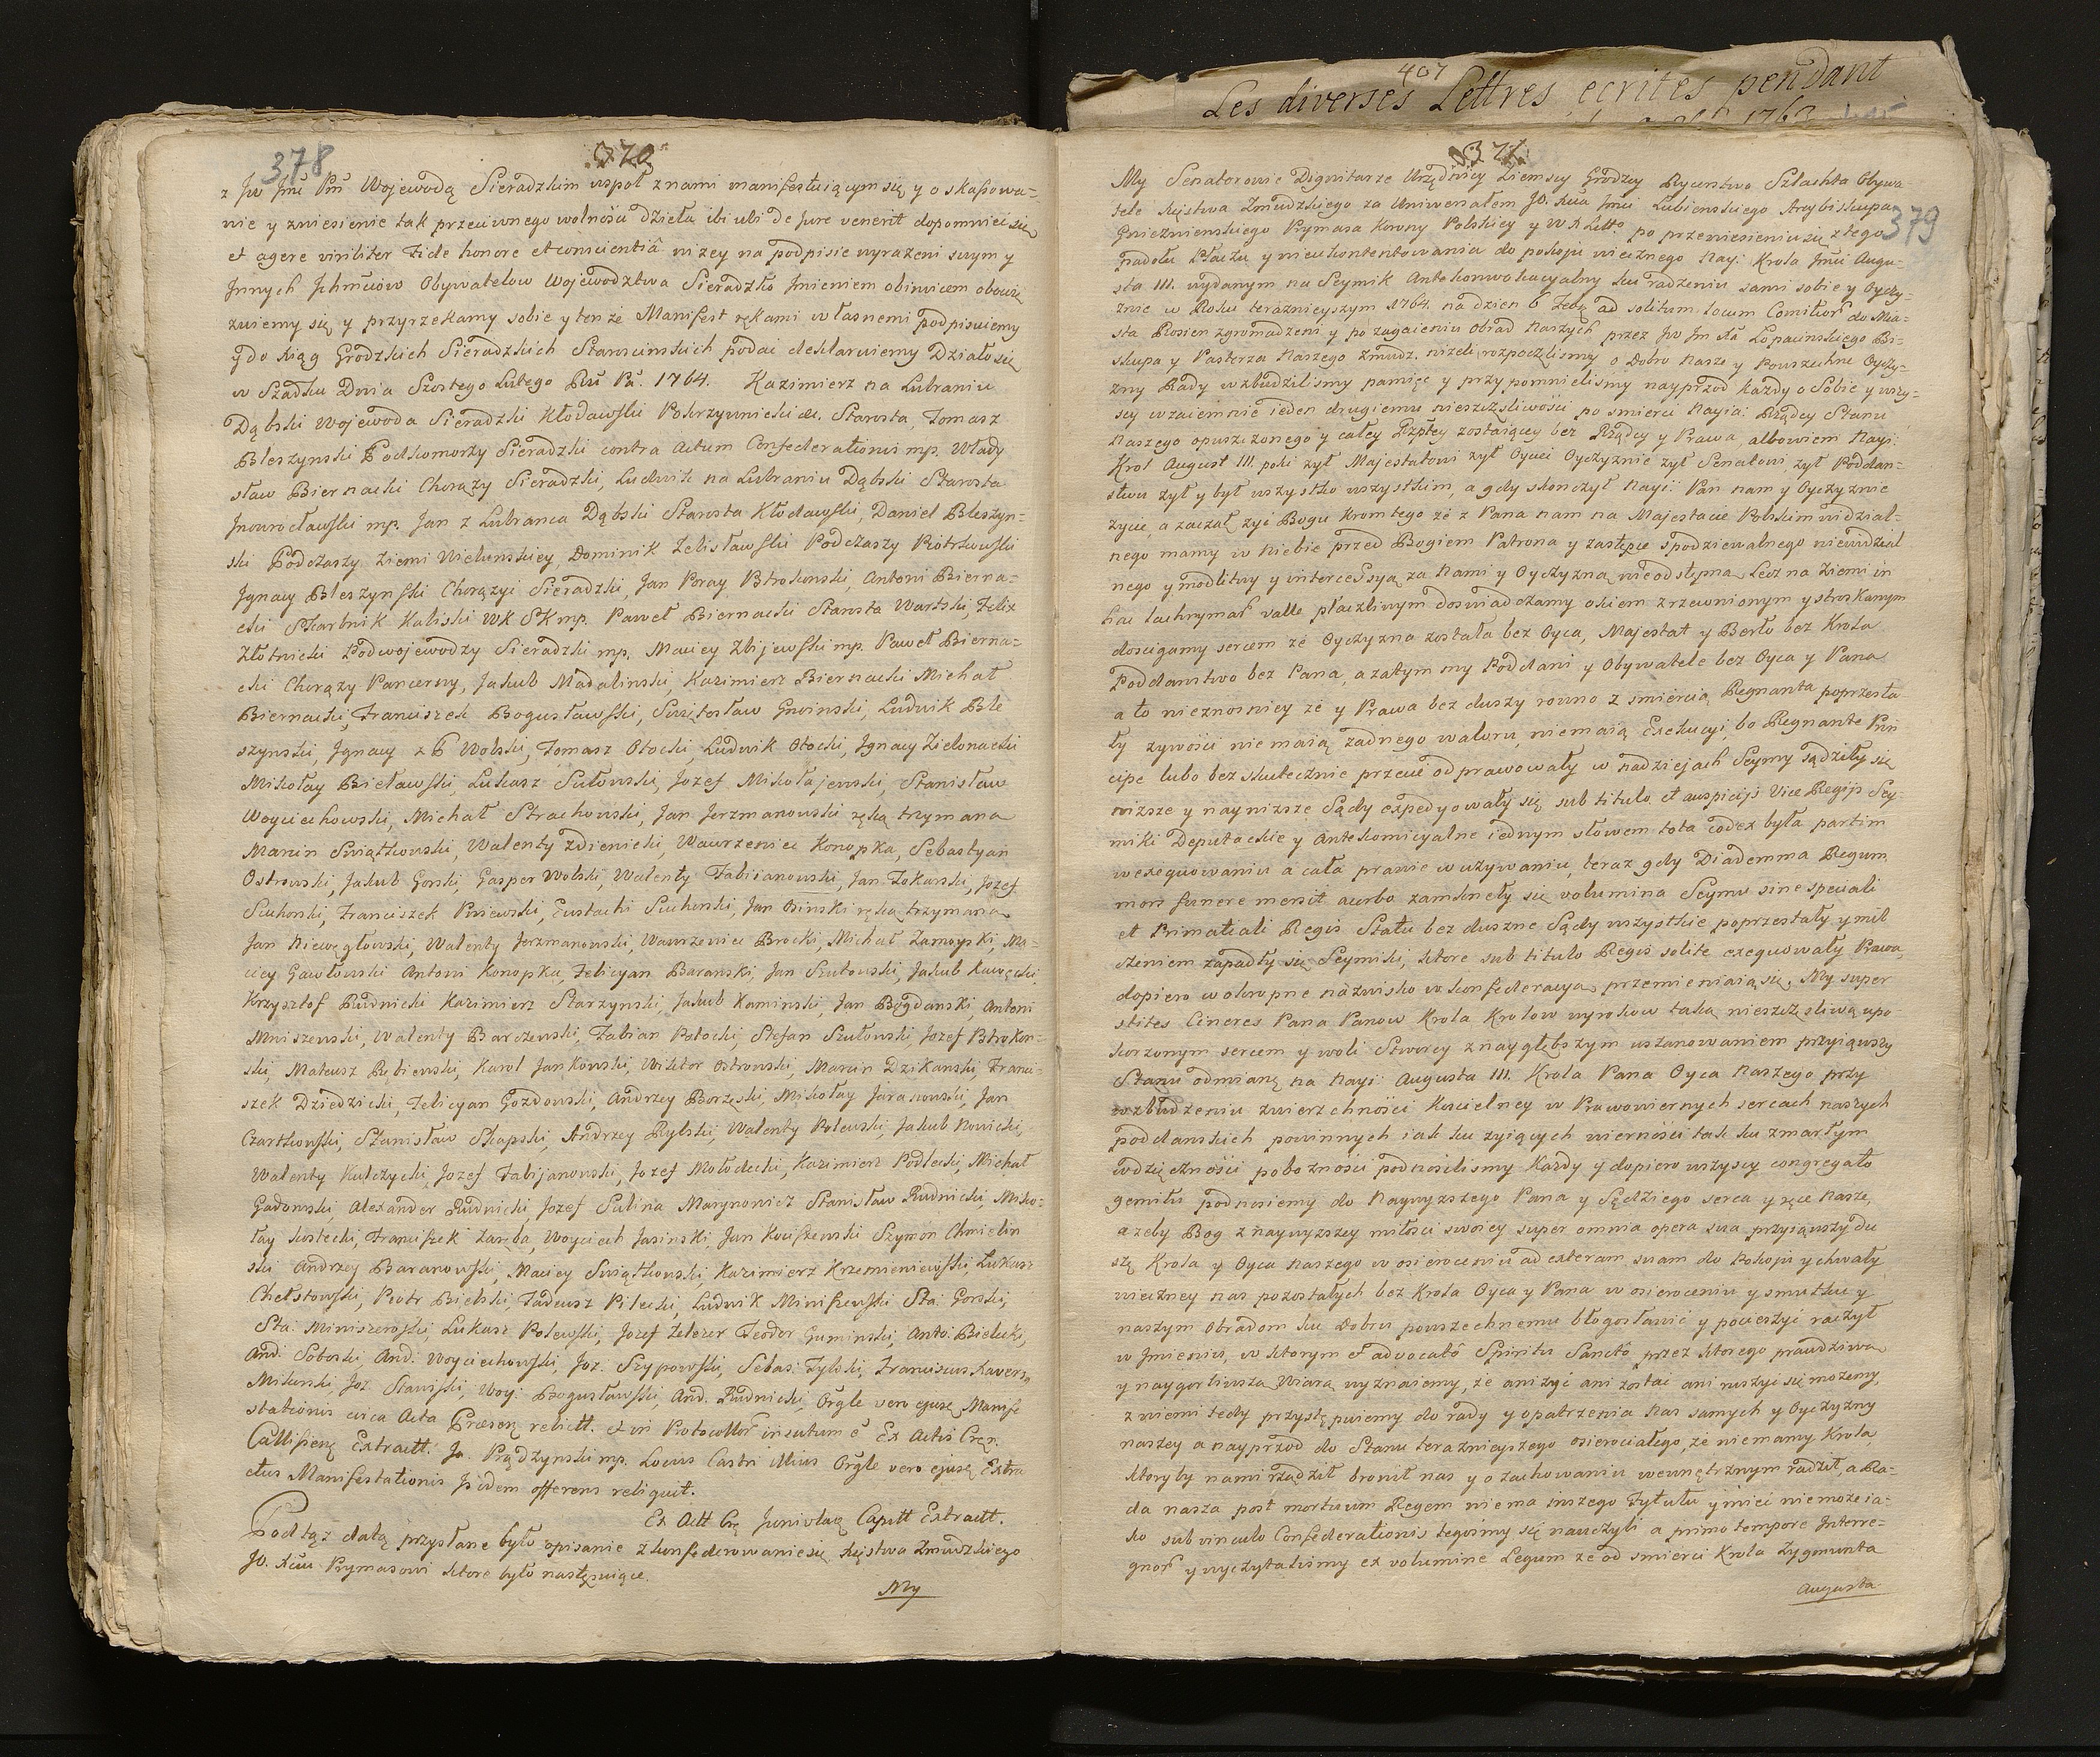 407
Les diverses Lettres ecrites pendant
1763
378
370
z Jw Jmć Pnu Wojewodą Sieradzkim wspoł znami manifestuiącym się y o skaſsowa=
nie y zniesienie tak przeciwnego wolności dzieła ibi ubi de Jure venerit dopomnieć się
et agere viriliter Fide honore et conscientiâ niżey na podpisie wyrażeni swym y
Jnnych Jchmćiów Obywatelow Woiewodztwa Sieradzko Jmieniem obinwicem obowię
zuiemy się y przyrzekamy sobie y ten że Manifest rękami własnemi podpisuiemy
y do Xiąg Grodzkich Sieradzkich Starościnskich podać deklaruiemy Działo się
w Szadku Dnia Szostego Lutego Rku Pań. 1764. Kazimierz na Lubraniu
Dąbski Wojewoda Sieradzki Kłodawſki Pokrzywnicki &c. Starosta, Tomasz
Bleszynski Podkomorzy Sieradzki contra Actum Confederationis mp. Włady
sław Biernacki Chorąży Sieradzki, Ludwik na Lubraniu Dąbski Starosta
Jnowrocławſki mp. Jan z Lubrańca Dąbski Starosta Kłodawſki, Daniel Bleszyn=
ski Podczaszy Ziemi Wielunskiey, Dominik Zelisławſki Podczaszy Piotrkowſki
Jgnacy Bleszynſki Chorązyc Sieradzki, Jan Poray Pstrokonski, Antoni Bierna=
cki Skarbnik Kaliski WK SK mp. Paweł Biernacki Starosta Wartski, Felix
Złotnicki Podwojewodzy Sieradzki mp. Maciey Zbijewſki mp. Paweł Bierna=
cki Chorąży Pancerny, Jakub Madalinski, Kazimierz Biernacki Michał
Biernacki, Franciszek Bogusławſki, Swiętosław Gowinski, Ludwik Ble
szynski, Jgnacy z B Wolski, Tomasz Otocki, Ludwik Otocki, Jgnacy Zielonacki
Mikołay Bielawſki, Lukasz Sułowski, Jozef Mikołajewski, Stanisław
Woyciechowski, Michał Strachowski, Jan Jerzmanowski ręką trzymaną
Marcin Swiątkowski, Walenty Zdzienicki, Wawrzeniec Konopka, Sebastyan
Ostrowski, Jakub Gorski, Gasper Wolski, Walenty Fabianowski, Jan Tokarski, Jozef
Suchorski, Franciszek Psiewski, Eustachi Suchorski, Jan Osinski ręką trzymaną
Jan Niewęgłowski, Walenty Jerzmanowski, Wawrzeniec Brocki, Michał Zamoyski, Ma=
ciey Gawłowski Antoni Konopka, Felicyan Baranski, Jan Szutowski, Jakub Kawęcki
Krzysztof Rudnicki Kazimierz Starzynski, Jakub Kaminski, Jan Bogdanski, Antoni
Mniszewski, Walenty Barczewski, Fabian Potocki, Stefan Szułowski, Jozef Pstrokon=
ski, Mateusz Rębiewski, Karol Jankowski, Wiktor Ostrowski, Marcin Dzikanski, Franci=
szek Dziedzicki, Felicyan Gozdowski, Andrzey Borzęski, Mikołay Jarasowski, Jan
Czartkowſki, Stanisław Skapski, Andrzey Rylski, Walenty Polewski, Jakub Nowicki,
Walenty Kulczycki, Jozef Fabijanowski, Jozef Mołodecki, Kazimierz Podlecki, Michał
Gadowski, Alexander Rudnicki Jozef Salina Marynowicz Stanisław Rudnicki, Miko=
łay Kostecki, Franciſzek Zaręba, Woyciech Jasinski, Jan Kociſzewski Szymon Chmielin
ski Andrzey Baranowſki, Maciey Swiątkowski, Kazimierz Krzemieniewſki, Łukasz
Chełstowſki, Piotr Bielski, Tadeusz Pilecki, Ludwik Miniſzewſki Sta: Gorski,
Sta: Miniszewſki, Lukasz Polewſki, Jozef Zelczer Teodor Guminski, Anto: Bielicki,
And: Soborski, And: Woyciechowſki, Joz. Szypowſki, Sebas: Zylski, Franciscus Xaver
Mikorski, Joz. Staniſki, Woy: Bogusławſki, And. Rudnicki, Orgle vero ejusq Manife
stationis circa Acta Præsen relictt. et in Protocollor insutum e Ex Actis Cręn.
Calliſieng Extractt. Ja. Prądzynski mp. Locus Castri illius Orgle vero ejusq Extra
ctus Manifestationis Jbidem offerens reliquit.
Ex Actt Crę Junivladz Captt Extractt.
Pod tąż datą przysłane było opisanie zkonfederowanie się Xięstwa Zmudzkiego
Jo. Xciu Prymasowi ktore było następuiące.
My
371
379
My Senatorowie Dignitarze Urzędnicy Ziemscy Grodzcy Rycerstwo Szlachta Obywa=
tele Xięstwa Zmudzkiego za Uniwersałem Jo. Xcia Jmci Lubienskiego Arcybiskupa
Gnieznienskiego Prymasa Korony Polskiey y W X Litto po przeniesieniu się z tego
padołu Płaczu y nieukontentowania do pokoju wiecznego Nayi: Krola Jmci Augu=
sta III. wydanym na Seymik Antekonwokacyalny ku radzeniu sami sobie y Oyczy=
znie w Roku teraznieyszym 1764. na dzien 6 Febr ad solitum locum Comitior do Mia=
sta Rosien zgromadzeni y po zagaieniu obrad naszych przez Jw Jm Xa Łopacinskiego Bi=
skupa y Pasterza naszego Zmudz. nizeli rozpoczęlismy o Dobro Nasze y Powszechne Oyczy=
zny Rady wzbudzilismy pamięć y przypomnielismy nayprzod każdy o Sobie y wszy=
scy wzaiemnie ieden drugiemu nieszczsliwości po smierci Nayia: Rządcy Stanu
Naszego opuszczonego y całey Rzptey zostaiącey bez Rządcy y Prawa, albowiem Nayi:
Krol August III. poki żył Majestatowi żył Oyuci Oyczyznie żył Senatowi, żył Poddan=
stwu żył y był wszystko wszystkim, a gdy skonczył Nayi: Pan nam y Oyczyznie
życie, a zaczał żyć Bogu kromtego że z Pana nam na Majestacie Polskim widzial=
nego mamy w Niebie przed Bogiem Patrona y zastępcę spodziewalnego niewidzial
nego y modlitwy y interceſsyą za Nami y Oyczyzną nieodstępną, Lecz na Ziemi in
hac lachrymar valle płaczliwym doswiadczamy okiem zrzewnionym y stroskanym
doscigamy sercem że Oyczyzna została bez Oyca, Majestat y Berło bez Krola
Poddanstwo bez Pana, a zatym my Poddani y Obywatele bez Oyca y Pana
a to nieznosniey że y Prawa bez duszy rowno z smiercią Regnanta poprzesta
ły żywości nie maią żadnego waloru, niemaią Exekucyi, bo Regnante Prin
cipe lubo bezskutecznie przecie odprawowały w nadziejach Seymy sądziły się
wizsze y naynizsze Sądy expedyowały się sub titulo et auspicijs Vice Regijs Sey=
miki Deputackie y Antekomicyalne iednym słowem tota codex była partim
wexequowaniu a cała prawie w używaniu, teraz gdy Diademma Regum
mors funere mersit acerbo zamknęły się volumina Seymu sine speciali
et Primatiali Regis Statu bez duszne Sądy wszystkie poprzestały y mil
czeniem zapadły się Seymiki, ktore sub titulo Regis solite exequowały Prawa,
dopiero w okropne názwisko w konfederacya przemieniaią się. My super
stites Cineres Pana Panow Krola Krolow wyrokow taką nieszczęsliwą upo
korzonym sercem y woli Stworcy z naygłębszym uszanowaniem przyiąwszy
Stanu odmianę na Nayi: Augusta III. Krola Pana Oyca Naszego przy
wzbudzeniu zwierzchności Koscielney w Prawowiernych sercach naszych
poddanskich powinnych iak ku żyiących wierności tak ku zmarłym
wdzięczności pobożności podnosilismy Każdy y dopiero wszyscy congregato
gemitu podnosiemy do Naywyzszego Pana y Sędziego serca y ręce Nasze,
azeby Bog z naywyzszey miłości swoiey super omnia opera sua przyiąwszy du
szę Krola y Oyca Naszego w osieroceniu ad exteram suam do Pokoju y chwały
wieczney nas pozostałych bez Krola Oyca y Pana w osieroceniu y smutku y
naszym Obradom ku Dobru powszechnemu błogosławić y pocieszyć raczył
w Jmieniu, w ktorym et advocatô Spiritu Sanctô przez ktorego prawdziwą
y naygorliwszą Wiarą wyznaiemy, że ani żyć ani zostać ani ruszyć się możemy,
z niemi tedy przystępuiemy do rady y opatrzenia Nas samych y Oyczyzny
naszey a nayprzod do Stanu teraznieyszego osierociałego, że niemamy Krola,
ktoryby nami rządził bronił nas y o zachowaniu wewnętrznym radził, a Ra=
da nasza post mortuum Regem niema inszego Tytułu y mieć niemoże ia=
ko sub vinculo Confederationis tegosmy się nauczyli a primo tempore Interre=
gnor y wyczytalismy ex volumine Legum że od smierci Krola Zygmunta
Augusta